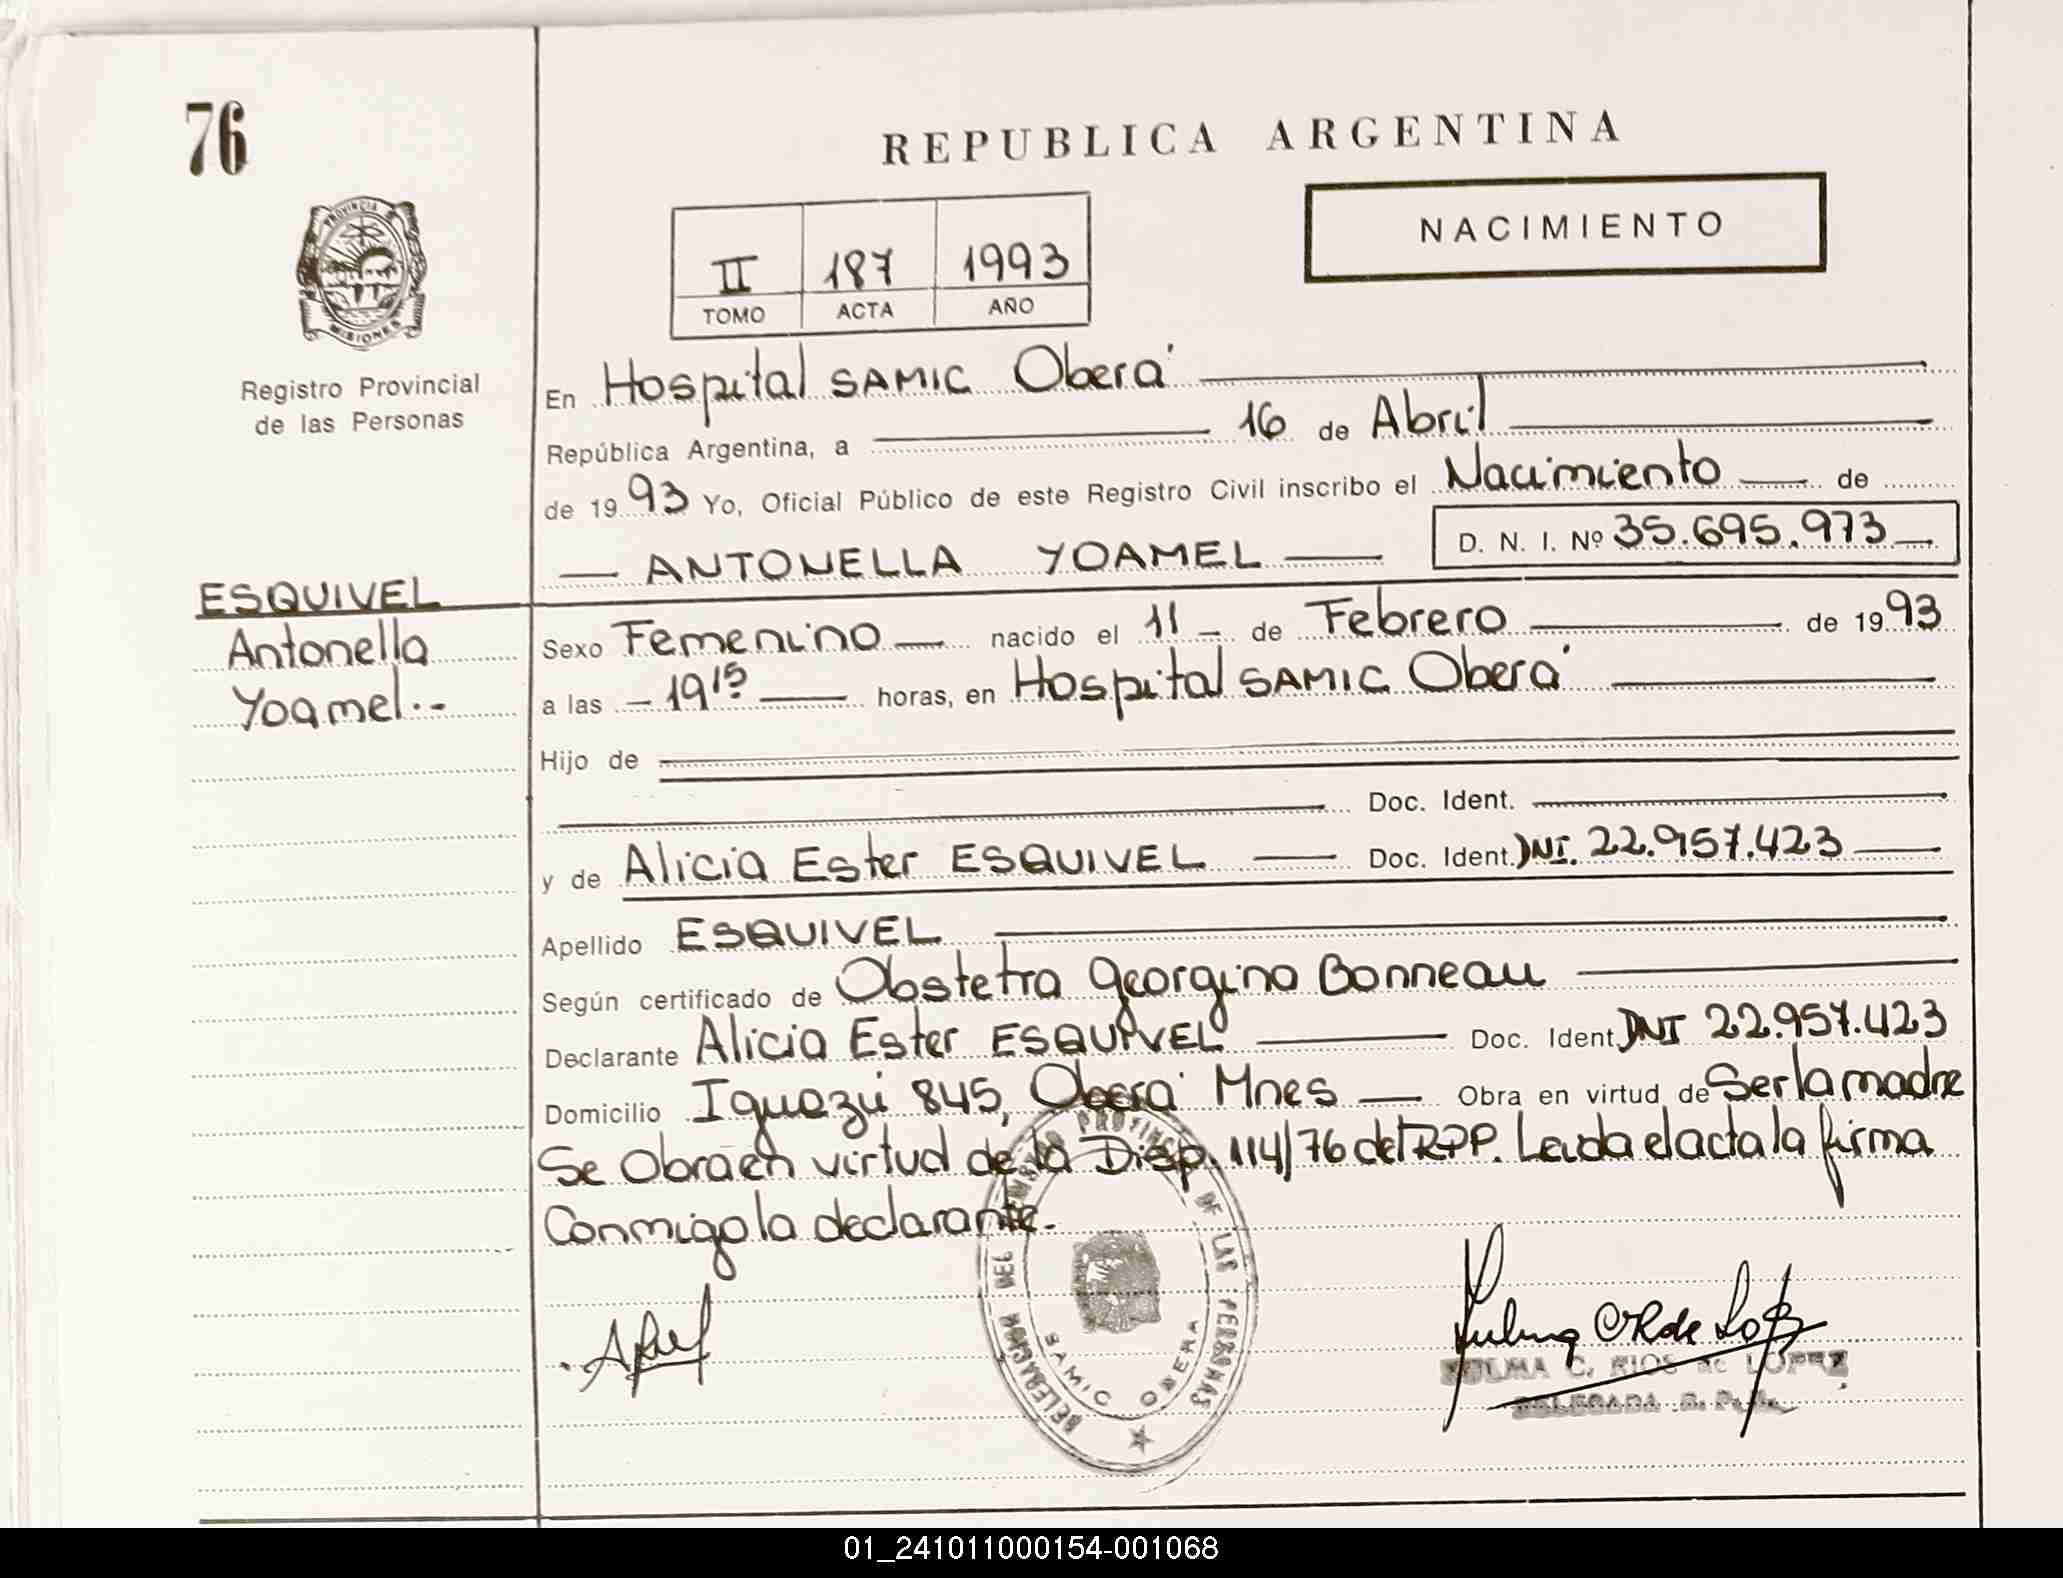 76
REPUBLICA ARGENTINA
NACIMIENTO
II 187 1993
TOMO ACTA AÑO
PROVINCIA
MISIONES
Registro Provincial
de las Personas
En Hospital SAMIC Oberá
República Argentina, a 16 de Abril
de 1993 Yo, Oficial Público de este Registro Civil inscribo el Nacimiento de
ANTONELLA YOAMEL D. N. I. Nº 35.695.973
ESQUIVEL
Antonella
Yoamel.-
Sexo Femenino nacido el 11 de Febrero de 1993
a las 19 15 horas, en Hospital SAMIC Oberá
Hijo de
Doc. Ident.
y de Alicia Ester ESQUIVEL Doc. Ident. DNI. 22.957.423
Apellido ESQUIVEL
Según certificado de Obstetra Georgina Bonneau
Declarante Alicia Ester ESQUIVEL Doc. Ident. DNI 22.957.423
Domicilio Iguazú 845, Oberá Mnes Obra en virtud de Ser la madre
Se Obra en virtud de la Disp. 114/76 del RPP. Leida el acta la firma
Conmigo la declarante.
DELEGACION DEL REGISTRO PROVINCIAL DE LAS PERSONAS
SAMIC OBERA
ZULMA C. RIOS de LOPEZ
DELEGADA R. P. P.
01_241011000154-001068